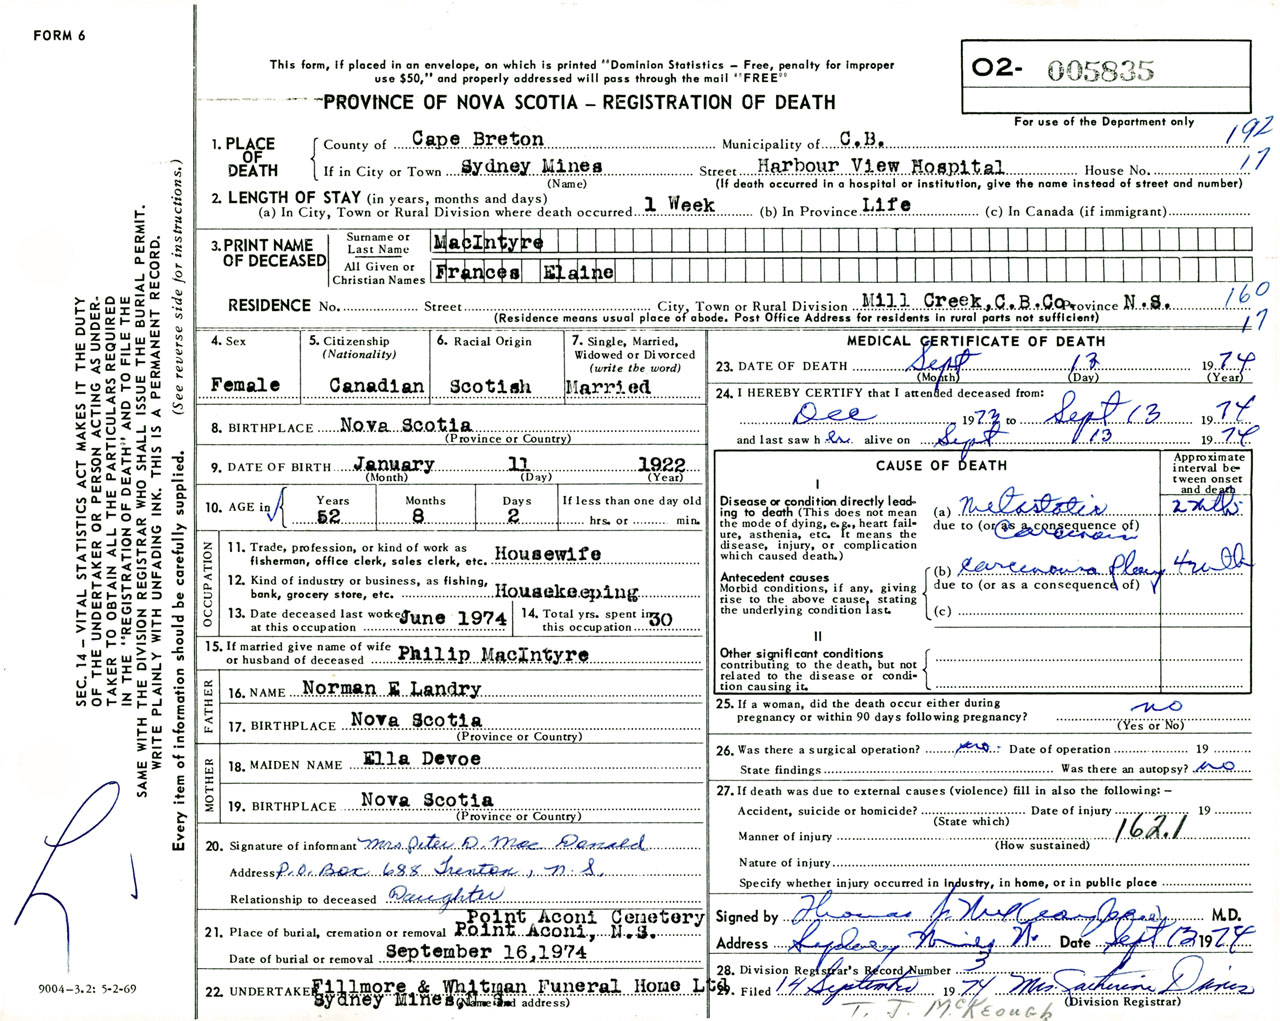 FORM 6
This form, if placed in an envelope, on which is printed "Dominion Statistics – Free, penalty for improper
use $50," and properly addressed will pass through the mail "FREE"
O2- 005835
For use of the Department only
PROVINCE OF NOVA SCOTIA – REGISTRATION OF DEATH
192
17
1. PLACE OF DEATH
County of Cape Breton Municipality of C.B.
If in City or Town Sydney Mines Street Harbour View Hospital House No.
(Name) (If death occurred in a hospital or institution, give the name instead of street and number)
2. LENGTH OF STAY (in years, months and days)
(a) In City, Town or Rural Division where death occurred 1 Week (b) In Province Life (c) In Canada (if immigrant)
3. PRINT NAME OF DECEASED
Surname or Last Name MacIntyre
All Given or Christian Names Frances Elaine
RESIDENCE No. Street City, Town or Rural Division Mill Creek, C.B.Co. Province N.S.
(Residence means usual place of abode. Post Office Address for residents in rural parts not sufficient)
160
17
4. Sex
Female
5. Citizenship
(Nationality)
Canadian
6. Racial Origin
Scotish
7. Single, Married,
Widowed or Divorced
(write the word)
Married
8. BIRTHPLACE Nova Scotia
(Province or Country)
9. DATE OF BIRTH January 11 1922
(Month) (Day) (Year)
10. AGE in
Years Months Days If less than one day old
52 8 2 hrs. or min.
OCCUPATION
11. Trade, profession, or kind of work as
fisherman, office clerk, sales clerk, etc. Housewife
12. Kind of industry or business, as fishing,
bank, grocery store, etc. Housekeeping
13. Date deceased last worked
at this occupation June 1974
14. Total yrs. spent in
this occupation 30
15. If married give name of wife
or husband of deceased Philip MacIntyre
FATHER
16. NAME Norman E Landry
17. BIRTHPLACE Nova Scotia
(Province or Country)
MOTHER
18. MAIDEN NAME Ella Devoe
19. BIRTHPLACE Nova Scotia
(Province or Country)
20. Signature of informant Mrs Peter D. Mac Donald
Address P.O. Box 688 Trenton, N.S.
Relationship to deceased Daughter
21. Place of burial, cremation or removal Point Aconi Cemetery
Point Aconi, N.S.
Date of burial or removal September 16, 1974
22. UNDERTAKER Fillmore & Whitman Funeral Home Ltd
Sydney Mines, N.S.
(Name and address)
MEDICAL CERTIFICATE OF DEATH
23. DATE OF DEATH Sept 13 1974
(Month) (Day) (Year)
24. I HEREBY CERTIFY that I attended deceased from:
Dec 1973 to Sept 13 1974
and last saw her alive on Sept 13 1974
CAUSE OF DEATH
Approximate
interval be-
tween onset
and death
I
Disease or condition directly lead-
ing to death (This does not mean
the mode of dying, e.g., heart fail-
ure, asthenia, etc. It means the
disease, injury, or complication
which caused death.)
(a) Metastatic
due to (or as a consequence of)
Carcinoma
Antecedent causes
Morbid conditions, if any, giving
rise to the above cause, stating
the underlying condition last.
(b) Carcinoma
due to (or as a consequence of)
(c)
II
Other significant conditions
contributing to the death, but not
related to the disease or condi-
tion causing it.
25. If a woman, did the death occur either during
pregnancy or within 90 days following pregnancy? no
(Yes or No)
26. Was there a surgical operation? no Date of operation 19
State findings Was there an autopsy? no
27. If death was due to external causes (violence) fill in also the following: –
Accident, suicide or homicide? Date of injury 19
(State which)
Manner of injury 162.1
(How sustained)
Nature of injury
Specify whether injury occurred in industry, in home, or in public place
Signed by Thomas M.D.
Address Sydney Mines N.S. Date Sept 13 1974
28. Division Registrar's Record Number 3
29. Filed 14 September 1974 Mrs. Catherine Davis
(Division Registrar)
T. J. McKEOUGH
SEC. 14 – VITAL STATISTICS ACT MAKES IT THE DUTY
OF THE UNDERTAKER OR PERSON ACTING AS UNDER-
TAKER TO OBTAIN ALL THE PARTICULARS REQUIRED
IN THE "REGISTRATION OF DEATH" AND TO FILE THE
SAME WITH THE DIVISION REGISTRAR WHO SHALL ISSUE THE BURIAL PERMIT.
WRITE PLAINLY WITH UNFADING INK. THIS IS A PERMANENT RECORD.
Every item of information should be carefully supplied. (See reverse side for instructions.)
9004-3.2: 5-2-69